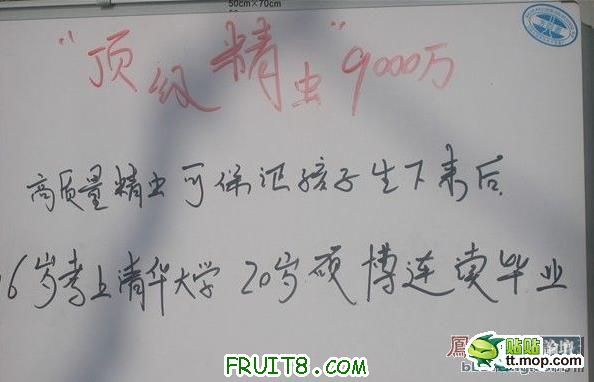 50cm×70cm
"顶级精虫"9000万
高质量精虫可保证孩子生下来后
16岁考上清华大学 20岁硕博连读毕业
贴贴
tt.mop.com
FRUIT8.COM